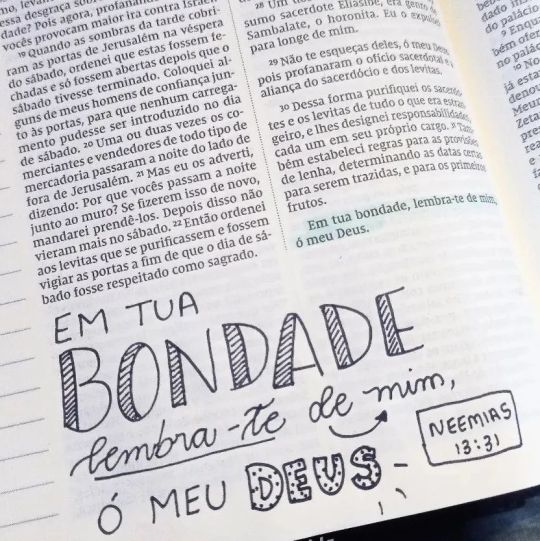 essa desgraça sobre
dade? Pois agora, profanando
vocês provocam maior ira contra Israel
19 Quando as sombras da tarde cobri-
ram as portas de Jerusalém na véspera
do sábado, ordenei que estas fossem fe-
chadas e só fossem abertas depois que o
sábado tivesse terminado. Coloquei al-
guns de meus homens de confiança jun-
to às portas, para que nenhum carrega-
mento pudesse ser introduzido no dia
de sábado. 20 Uma ou duas vezes os co-
merciantes e vendedores de todo tipo de
mercadoria passaram a noite do lado de
fora de Jerusalém. 21 Mas eu os adverti,
dizendo: Por que vocês passam a noite
junto ao muro? Se fizerem isso de novo,
mandarei prendê-los. Depois disso não
vieram mais no sábado. 22 Então ordenei
aos levitas que se purificassem e fossem
vigiar as portas a fim de que o dia de sá-
bado fosse respeitado como sagrado.
28 Um dos
sumo sacerdote Eliasibe, era genro de
Sambalate, o horonita. Eu o expulsei
para longe de mim.
29 Não te esqueças deles, ó meu Deus,
pois profanaram o ofício sacerdotal e a
aliança do sacerdócio e dos levitas.
30 Dessa forma purifiquei os sacerdo-
tes e os levitas de tudo o que era estran-
geiro, e lhes designei responsabilidades,
cada um em seu próprio cargo. 31 Tam-
bém estabeleci regras para as provisões
de lenha, determinando as datas certas
para serem trazidas, e para os primeiros
frutos.
Em tua bondade, lembra-te de mim,
ó meu Deus.
dado in
do palácio
9 Enqua
bém ofer
no palác
10 No
já esta
denou
Meum
Zeta
pres
rea
EM TUA
BONDADE
lembra-te de mim,
Ó MEU DEUS
NEEMIAS
13:31